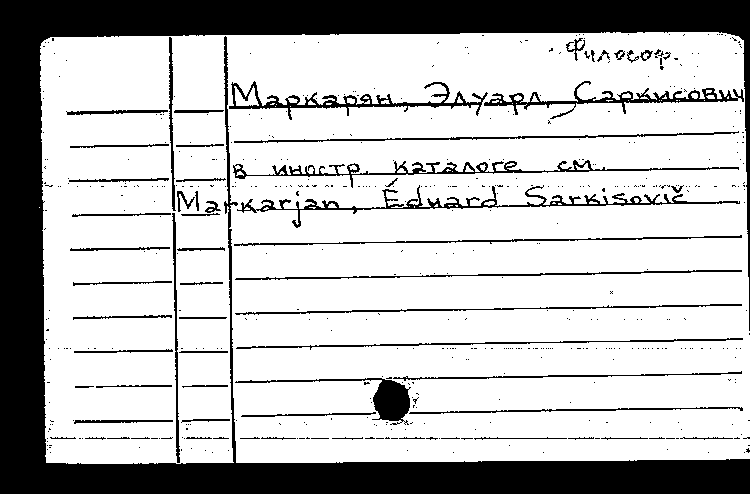 Философ.
Маркарян, Эдуард Саркисович
в иностр. каталоге см.
Markarjan, Éduard Sarkisovič